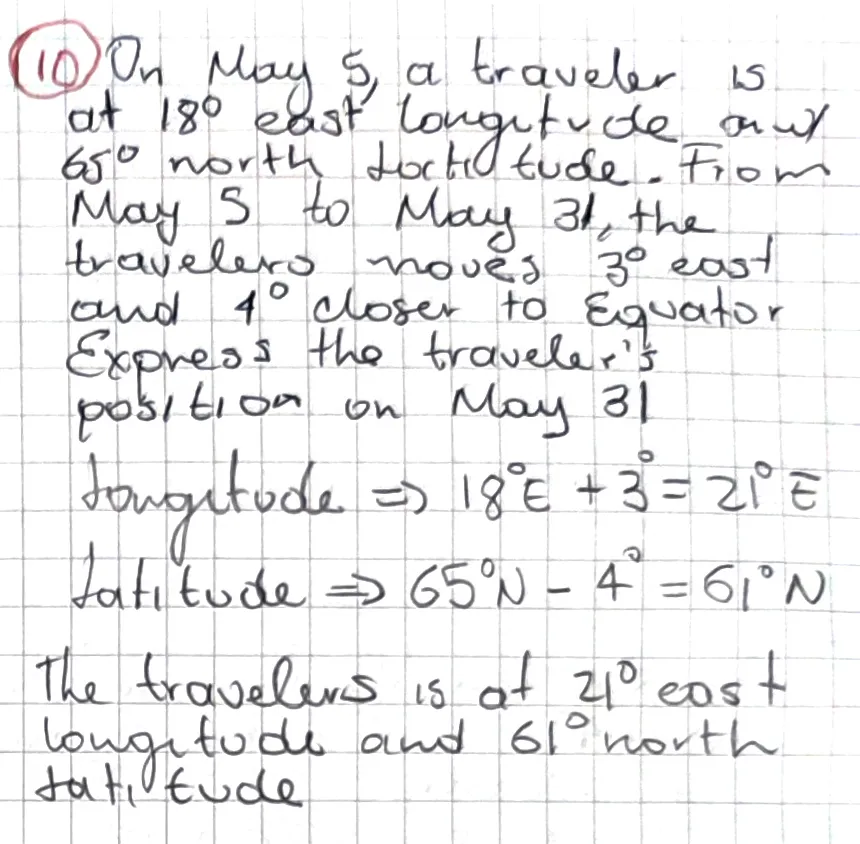 10 On May 5, a traveler is
at 18° east longitude and
65° north latitude. From
May 5 to May 31, the
travelers moves 3° east
and 4° closer to Equator
Express the traveler's
position on May 31
Longitude => 18°E + 3° = 21° E
Latitude => 65°N - 4° = 61° N
The travelers is at 21° east
longitude and 61° north
latitude